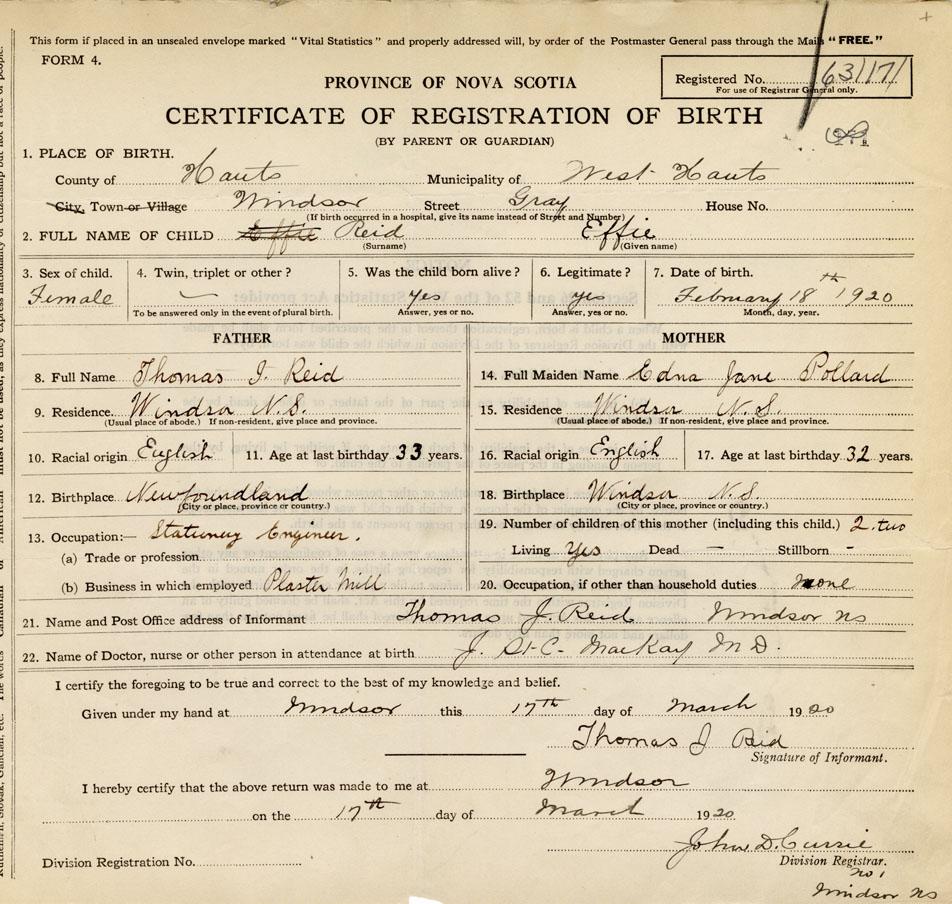 This form if placed in an unsealed envelope marked "Vital Statistics" and properly addressed will, by order of the Postmaster General pass through the Mails "FREE."
FORM 4.
Registered No. 63117
For use of Registrar General only.
PROVINCE OF NOVA SCOTIA
CERTIFICATE OF REGISTRATION OF BIRTH
(BY PARENT OR GUARDIAN)
1. PLACE OF BIRTH.
County of Hants Municipality of West Hants
City, Town or Village Windsor Street Gray House No.
(If birth occurred in a hospital, give its name instead of Street and Number)
2. FULL NAME OF CHILD Effie Reid Effie
(Surname) (Given name)
3. Sex of child. 4. Twin, triplet or other? 5. Was the child born alive? 6. Legitimate? 7. Date of birth.
Female — yes yes February 18th 1920
To be answered only in the event of plural birth. Answer, yes or no. Answer, yes or no. Month, day, year.
FATHER
8. Full Name Thomas J. Reid
9. Residence. Windsor N.S.
(Usual place of abode.) If non-resident, give place and province.
10. Racial origin English 11. Age at last birthday 33 years.
12. Birthplace Newfoundland
(City or place, province or country.)
13. Occupation:— Stationery Engineer.
(a) Trade or profession
(b) Business in which employed Plaster Mill
MOTHER
14. Full Maiden Name Edna Jane Pollard
15. Residence Windsor N.S.
(Usual place of abode.) If non-resident, give place and province.
16. Racial origin English 17. Age at last birthday 32 years.
18. Birthplace Windsor N.S.
(City or place, province or country.)
19. Number of children of this mother (including this child.) 2. two
Living Yes Dead — Stillborn -
20. Occupation, if other than household duties none
21. Name and Post Office address of Informant Thomas J. Reid Windsor NS
22. Name of Doctor, nurse or other person in attendance at birth J. St-C- MacKay M D.
I certify the foregoing to be true and correct to the best of my knowledge and belief.
Given under my hand at Windsor this 17th day of March 1920
Thomas J Reid
Signature of Informant.
I hereby certify that the above return was made to me at Windsor
on the 17th day of March 1920
John D. Currie
Division Registration No. Division Registrar.
No 1
Windsor NS